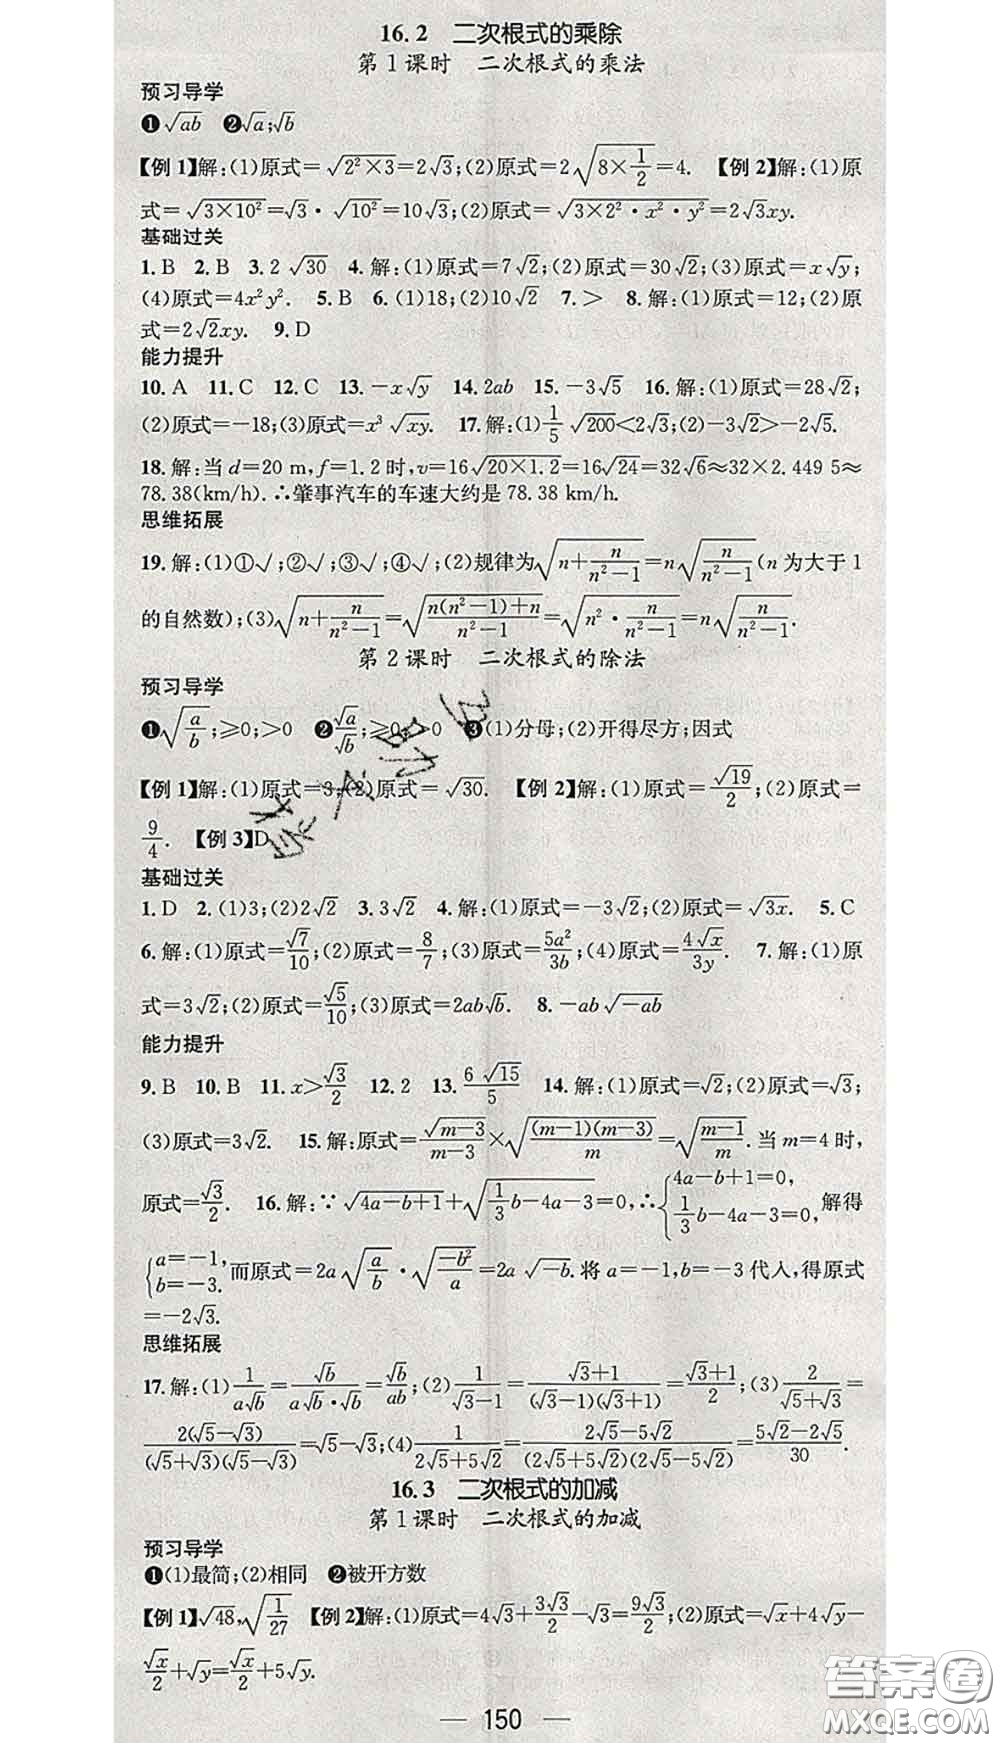 16.2 二次根式的乘除
第1课时 二次根式的乘法
预习导学
❶√(ab) ❷√a;√b
【例1】解:(1)原式=√(2²×3)=2√3;(2)原式=2√(8×1/2)=4. 【例2】解:(1)原
式=√(3×10²)=√3·√(10²)=10√3;(2)原式=√(3×2²·x²·y²)=2√3xy.
基础过关
1.B 2.B 3.2√30 4.解:(1)原式=7√2;(2)原式=30√2;(3)原式=x√y;
(4)原式=4x²y². 5.B 6.(1)18;(2)10√2 7.> 8.解:(1)原式=12;(2)原
式=2√2xy. 9.D
能力提升
10.A 11.C 12.C 13.-x√y 14.2ab 15.-3√5 16.解:(1)原式=28√2;
(2)原式=-18;(3)原式=x³√(xy). 17.解:(1)1/5√200<2√3;(2)-3√2>-2√5.
18.解:当d=20 m,f=1.2时,v=16√(20×1.2)=16√24=32√6≈32×2.449 5≈
78.38(km/h).∴肇事汽车的车速大约是78.38 km/h.
思维拓展
19.解:(1)①√;②√;③√;④√;(2)规律为√(n+n/(n²-1))=n√(n/(n²-1))(n为大于1
的自然数);(3)√(n+n/(n²-1))=√((n(n²-1)+n)/(n²-1))=√(n²·n/(n²-1))=n√(n/(n²-1)).
第2课时 二次根式的除法
预习导学
❶√(a/b);≥0;>0 ❷√a/√b;≥0;>0 ❸(1)分母;(2)开得尽方;因式
【例1】解:(1)原式=3;(2)原式=√30. 【例2】解:(1)原式=√19/2;(2)原式=
9/4. 【例3】D
基础过关
1.D 2.(1)3;(2)2√2 3.3√2 4.解:(1)原式=-3√2;(2)原式=√(3x). 5.C
6.解:(1)原式=√7/10;(2)原式=8/7;(3)原式=5a²/3b;(4)原式=4√x/3y. 7.解:(1)原
式=3√2;(2)原式=√5/10;(3)原式=2ab√b. 8.-ab√(-ab)
能力提升
9.B 10.B 11.x>√3/2 12.2 13.6√15/5 14.解:(1)原式=√2;(2)原式=√3;
(3)原式=3√2. 15.解:原式=√(m-3)/(m-3)×√((m-1)(m-3)/m)=√((m-1)/m).当m=4时,
原式=√3/2. 16.解:∵√(4a-b+1)+√(1/3b-4a-3)=0,∴{4a-b+1=0, 1/3b-4a-3=0, 解得
{a=-1, b=-3. 而原式=2a√(a/b)·√(-b²/a)=2a√(-b).将a=-1,b=-3代入,得原式
=-2√3.
思维拓展
17.解:(1)1/(a√b)=√b/(a√b·√b)=√b/ab;(2)1/(√3-1)=(√3+1)/((√3-1)(√3+1))=(√3+1)/2;(3)2/(√5+√3)=
2(√5-√3)/((√5+√3)(√5-√3))=√5-√3;(4)1/(2√5+5√2)=(2√5-5√2)/((2√5+5√2)(2√5-5√2))=(5√2-2√5)/30.
16.3 二次根式的加减
第1课时 二次根式的加减
预习导学
❶(1)最简;(2)相同 ❷被开方数
【例1】√48,√(1/27) 【例2】解:(1)原式=4√3+3√3/2-√3=9√3/2;(2)原式=√x+4√y-
√x/2+√y=√x/2+5√y.
— 150 —
答案圈
MXQE.COM